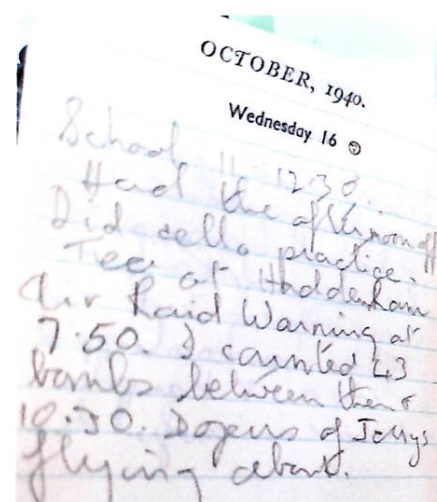 OCTOBER, 1940.
Wednesday 16
School 11-12.30.
Had the afternoon off
Did cello practice.
Tea at Haddenham
Air Raid Warning at
7.50. I counted 43
bombs between then &
10.30. Dozens of Jerrys
flying about.